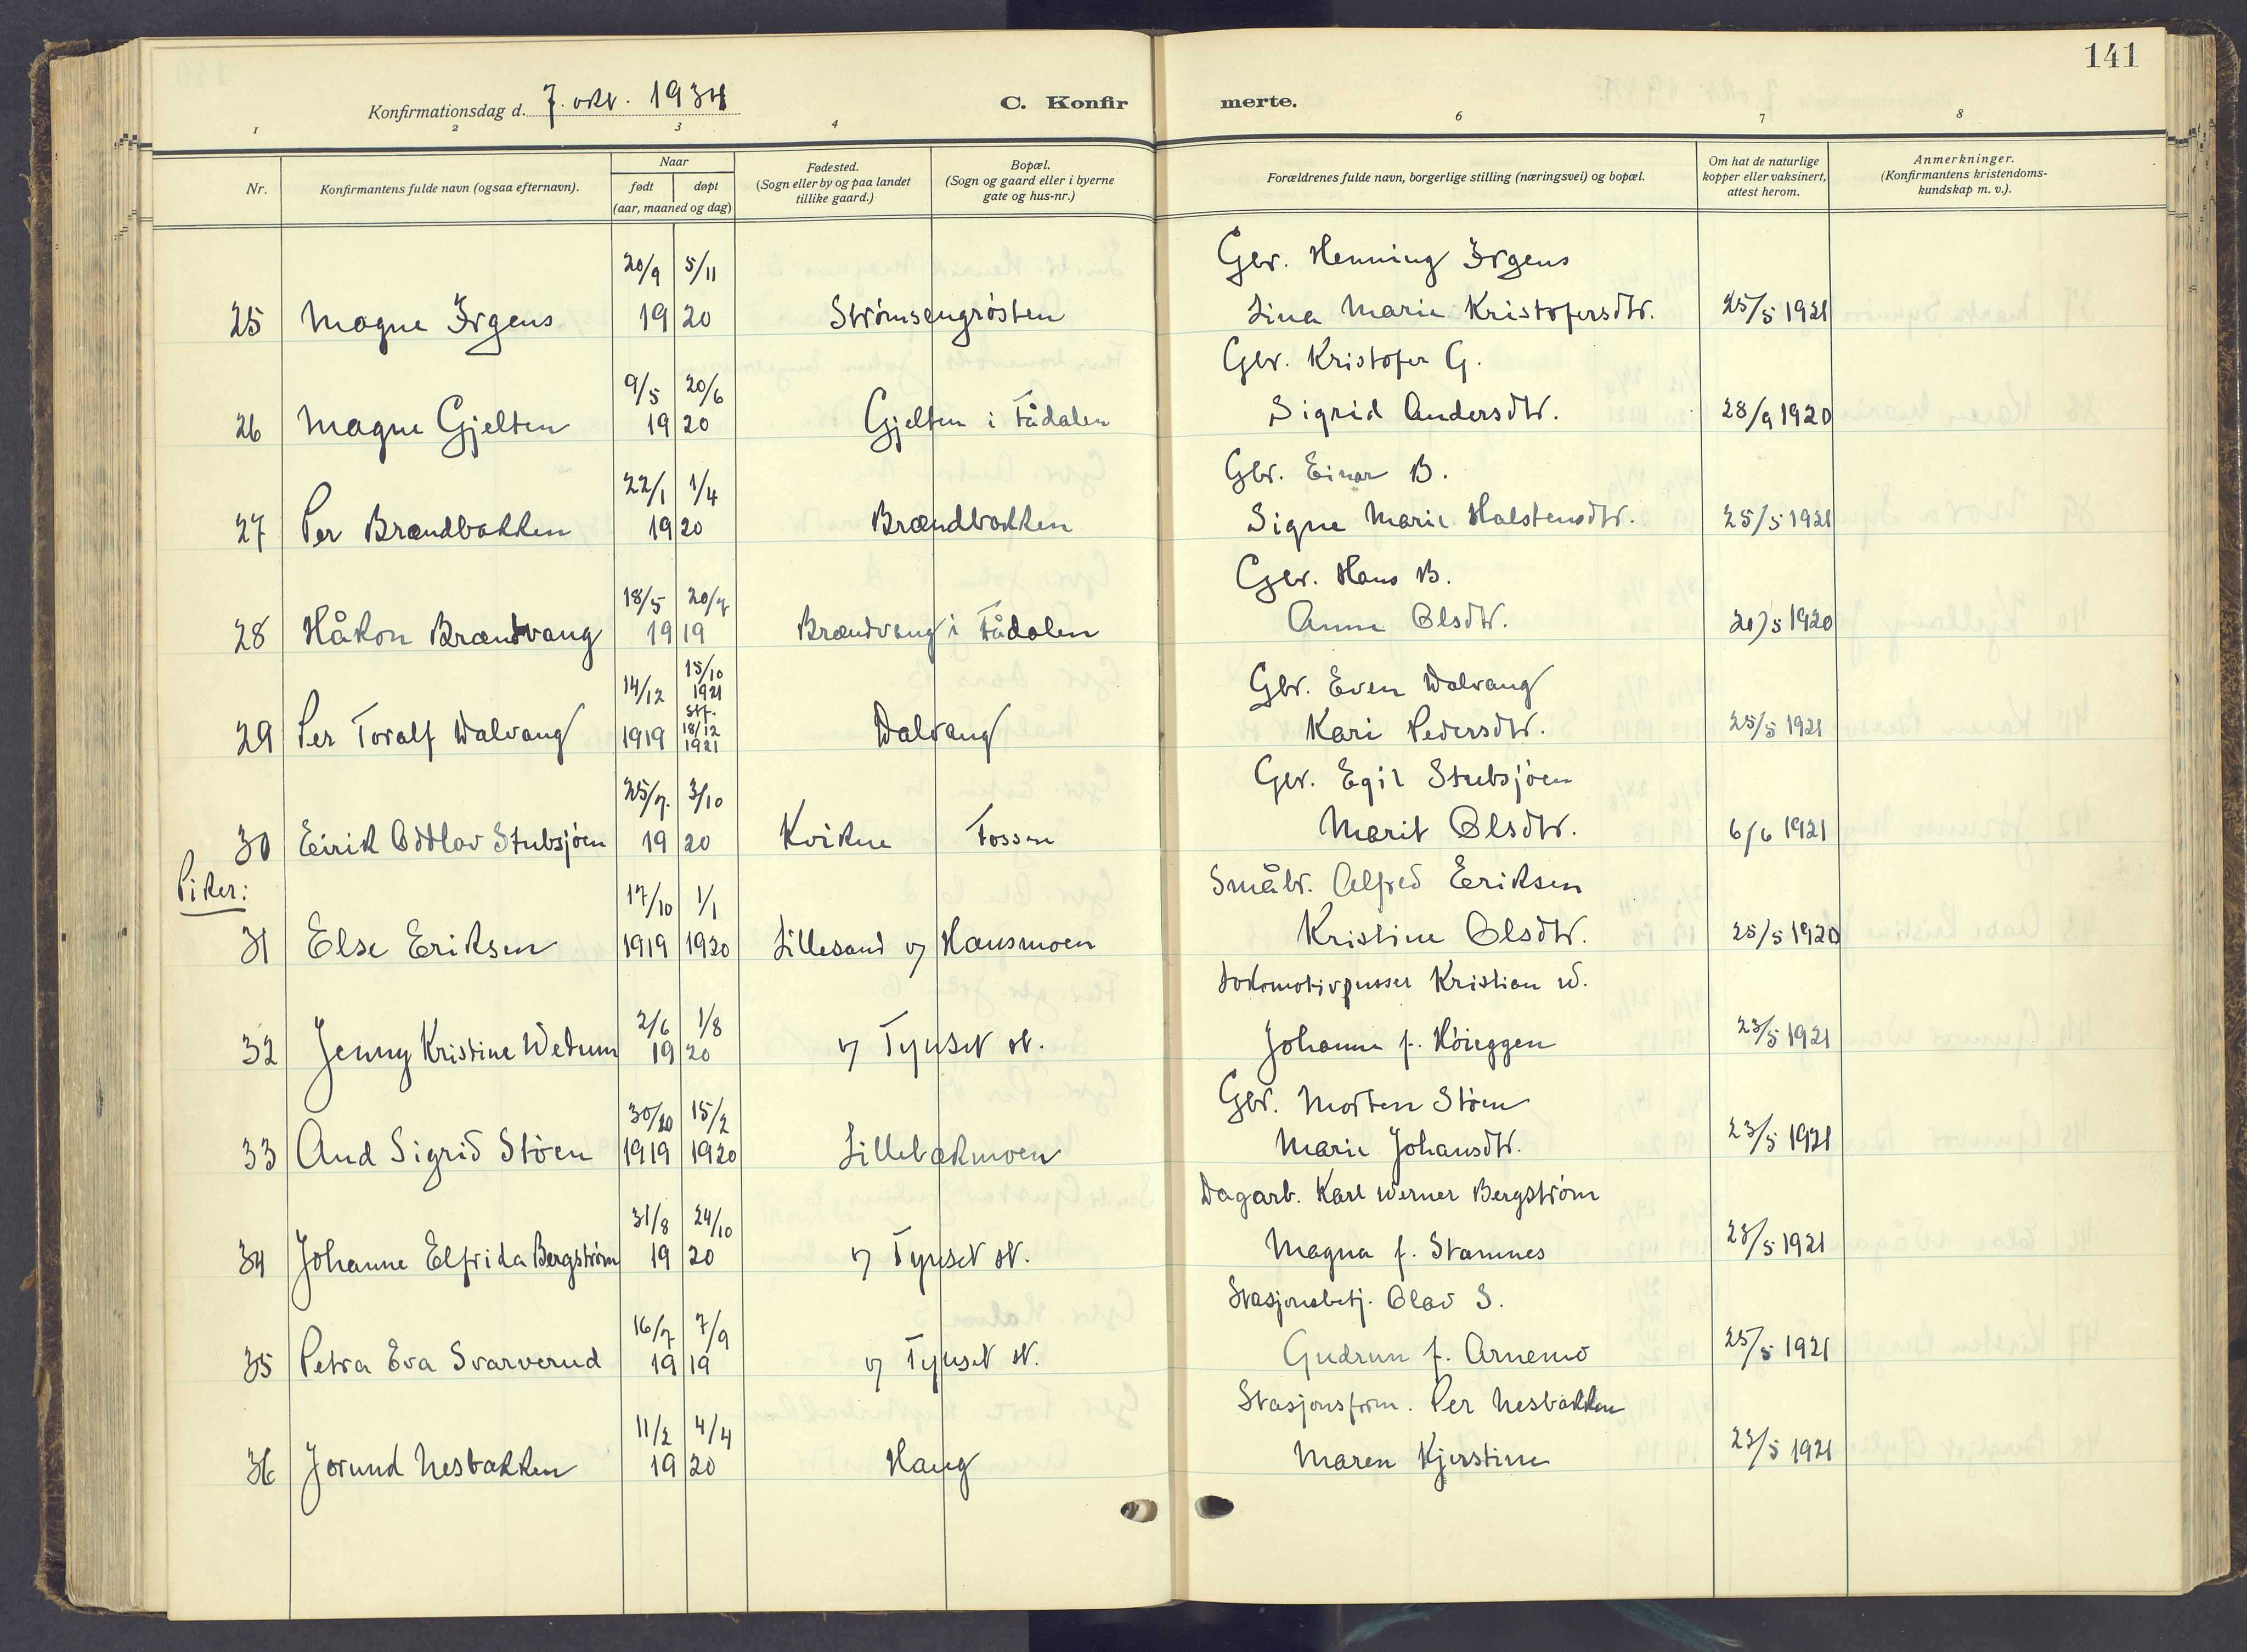 141
Konfirmationsdag d. 7. okt. 1934
C. Konfirmerte.
1 2 3 4 6 7 8
Nr.
Konfirmantens fulde navn (ogsaa efternavn).
Naar
født
døpt
(aar, maaned og dag)
Fødested.
(Sogn eller by og paa landet
tillike gaard.)
Bopæl.
(Sogn og gaard eller i byerne
gate og hus-nr.)
Forældrenes fulde navn, borgerlige stilling (næringsvei) og bopæl.
Om hat de naturlige
kopper eller vaksinert,
attest herom.
Anmerkninger.
(Konfirmantens kristendoms-
kundskap m. v.).
20/9 5/11 Gbr. Henning Irgens
25 Magne Irgens 19 20 Strømsengrøsten Lina Marie Kristofersdtr. 25/5 1921
9/5 20/6 Gbr. Kristofer G.
26 Magne Gjelten 19 20 Gjelten i Fådalen Sigrid Andersdtr. 28/9 1920
22/1 1/4 Gbr. Einar B.
27 Per Brændbakken 19 20 Brændbakken Signe Marie Halstensdtr. 25/5 1921
18/5 20/7 Gbr. Hans B.
28 Håkon Brændvang 19 19 Brændvang i Fådalen Anne Olsdtr. 20/5 1920
14/12 15/10 1921 Gbr. Even Dalvang
stf.
29 Per Toralf Dalvang 1919 18/12 1921 Dalvang Kari Pedersdtr. 25/5 1921
25/7. 3/10 Gbr. Egil Stubsjøen
30 Eirik Oddlav Stubsjøen 19 20 Kvikne Fossen Marit Olsdtr. 6/6 1921
Piker:
17/10 1/1 Småbr. Alfred Eriksen
31 Else Eriksen 1919 1920 Lillesand v/ Hansmoen Kristine Olsdtr. 25/5 1920
2/6 1/8 Lokomotivpusser Kristian W.
32 Jenny Kristine Wedum 19 20 v/ Tynset st. Johanne f. Høieggen 23/5 1921
30/10 15/2 Gbr. Morten Støen
33 Aud Sigrid Støen 1919 1920 Lillebækmoen Marie Johansdtr. 23/5 1921
31/8 24/10 Dagarb. Karl Werner Bergstrøm
34 Johanne Elfrida Bergstrøm 19 20 v/ Tynset st. Magna f. Stamnes 23/5 1921
16/7 7/9 Stasjonsbetj. Olav S.
35 Petra Eva Svarverud 19 19 v/ Tynset st. Gudrun f. Arnemo 25/5 1921
11/2 4/4 Stasjonsform. Per Nesbakken
36 Jorund Nesbakken 19 20 Haug Maren Kjerstine 23/5 1921